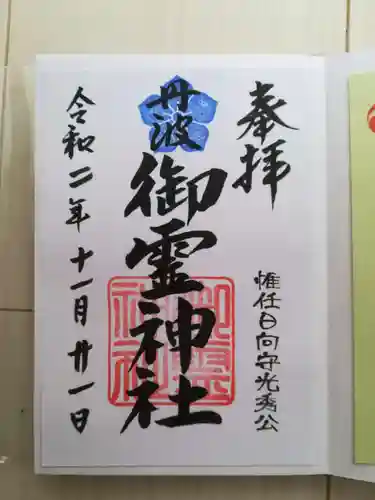 奉拝
惟任日向守光秀公
丹波
御霊神社
御霊神社
令和二年十一月廿一日